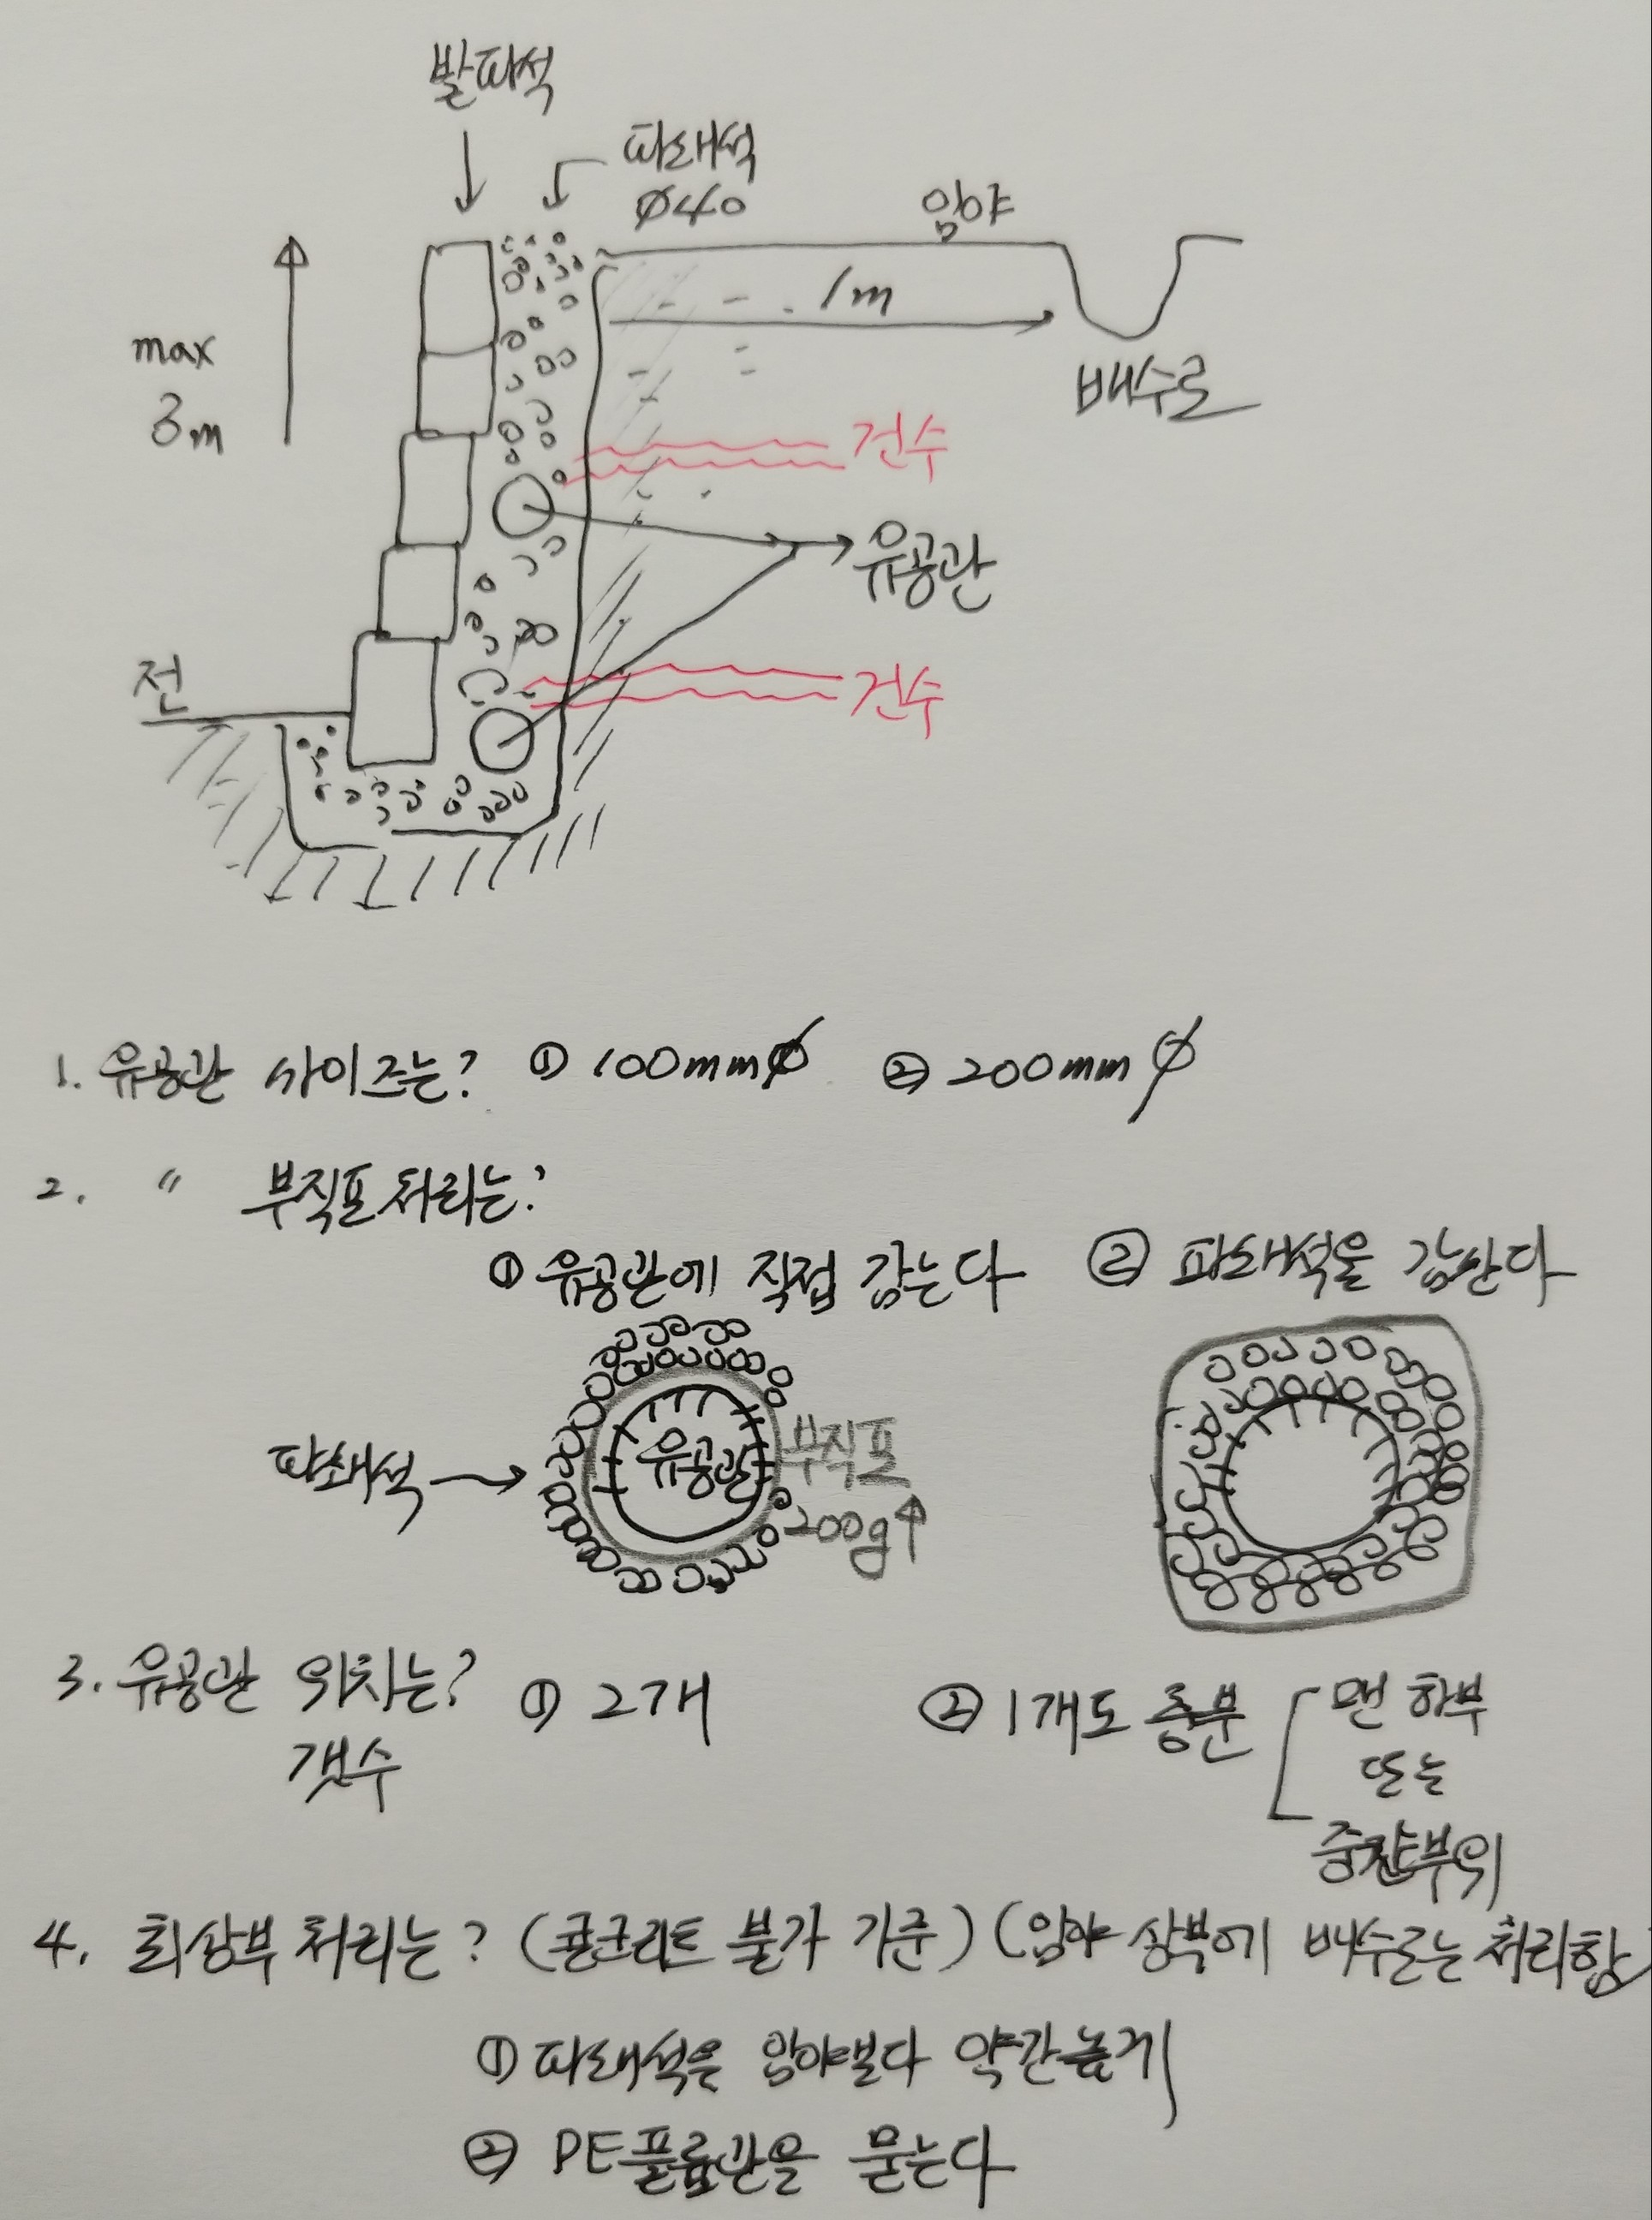 발파석
파쇄석
ø40
임야
1m
max
3m
배수로
건수
유공관
전
건수
1. 유공관 사이즈는? ① 100mmø ② 200mmø
2. 〃 부직포 처리는?
① 유공관에 직접 감는다 ② 파쇄석을 감싼다
유공관
부직포
200g↑
파쇄석 →
3. 유공관 위치는? ① 2개 ② 1개도 충분 [ 맨 하부
갯수 또는
중간부위
4. 최상부 처리는? (콘크리트 불가 기준) (임야 상부에 배수로는 처리함)
① 파쇄석은 임야보다 약간 높게
② PE플륨관을 묻는다